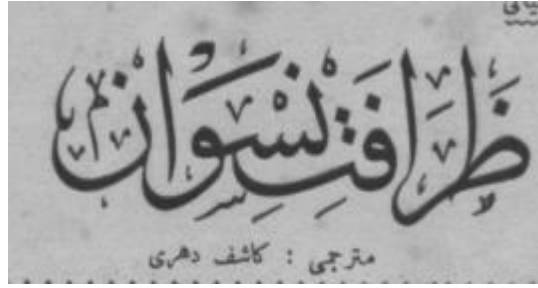 ظرافت نسوان
مترجمی : كاشف دهری